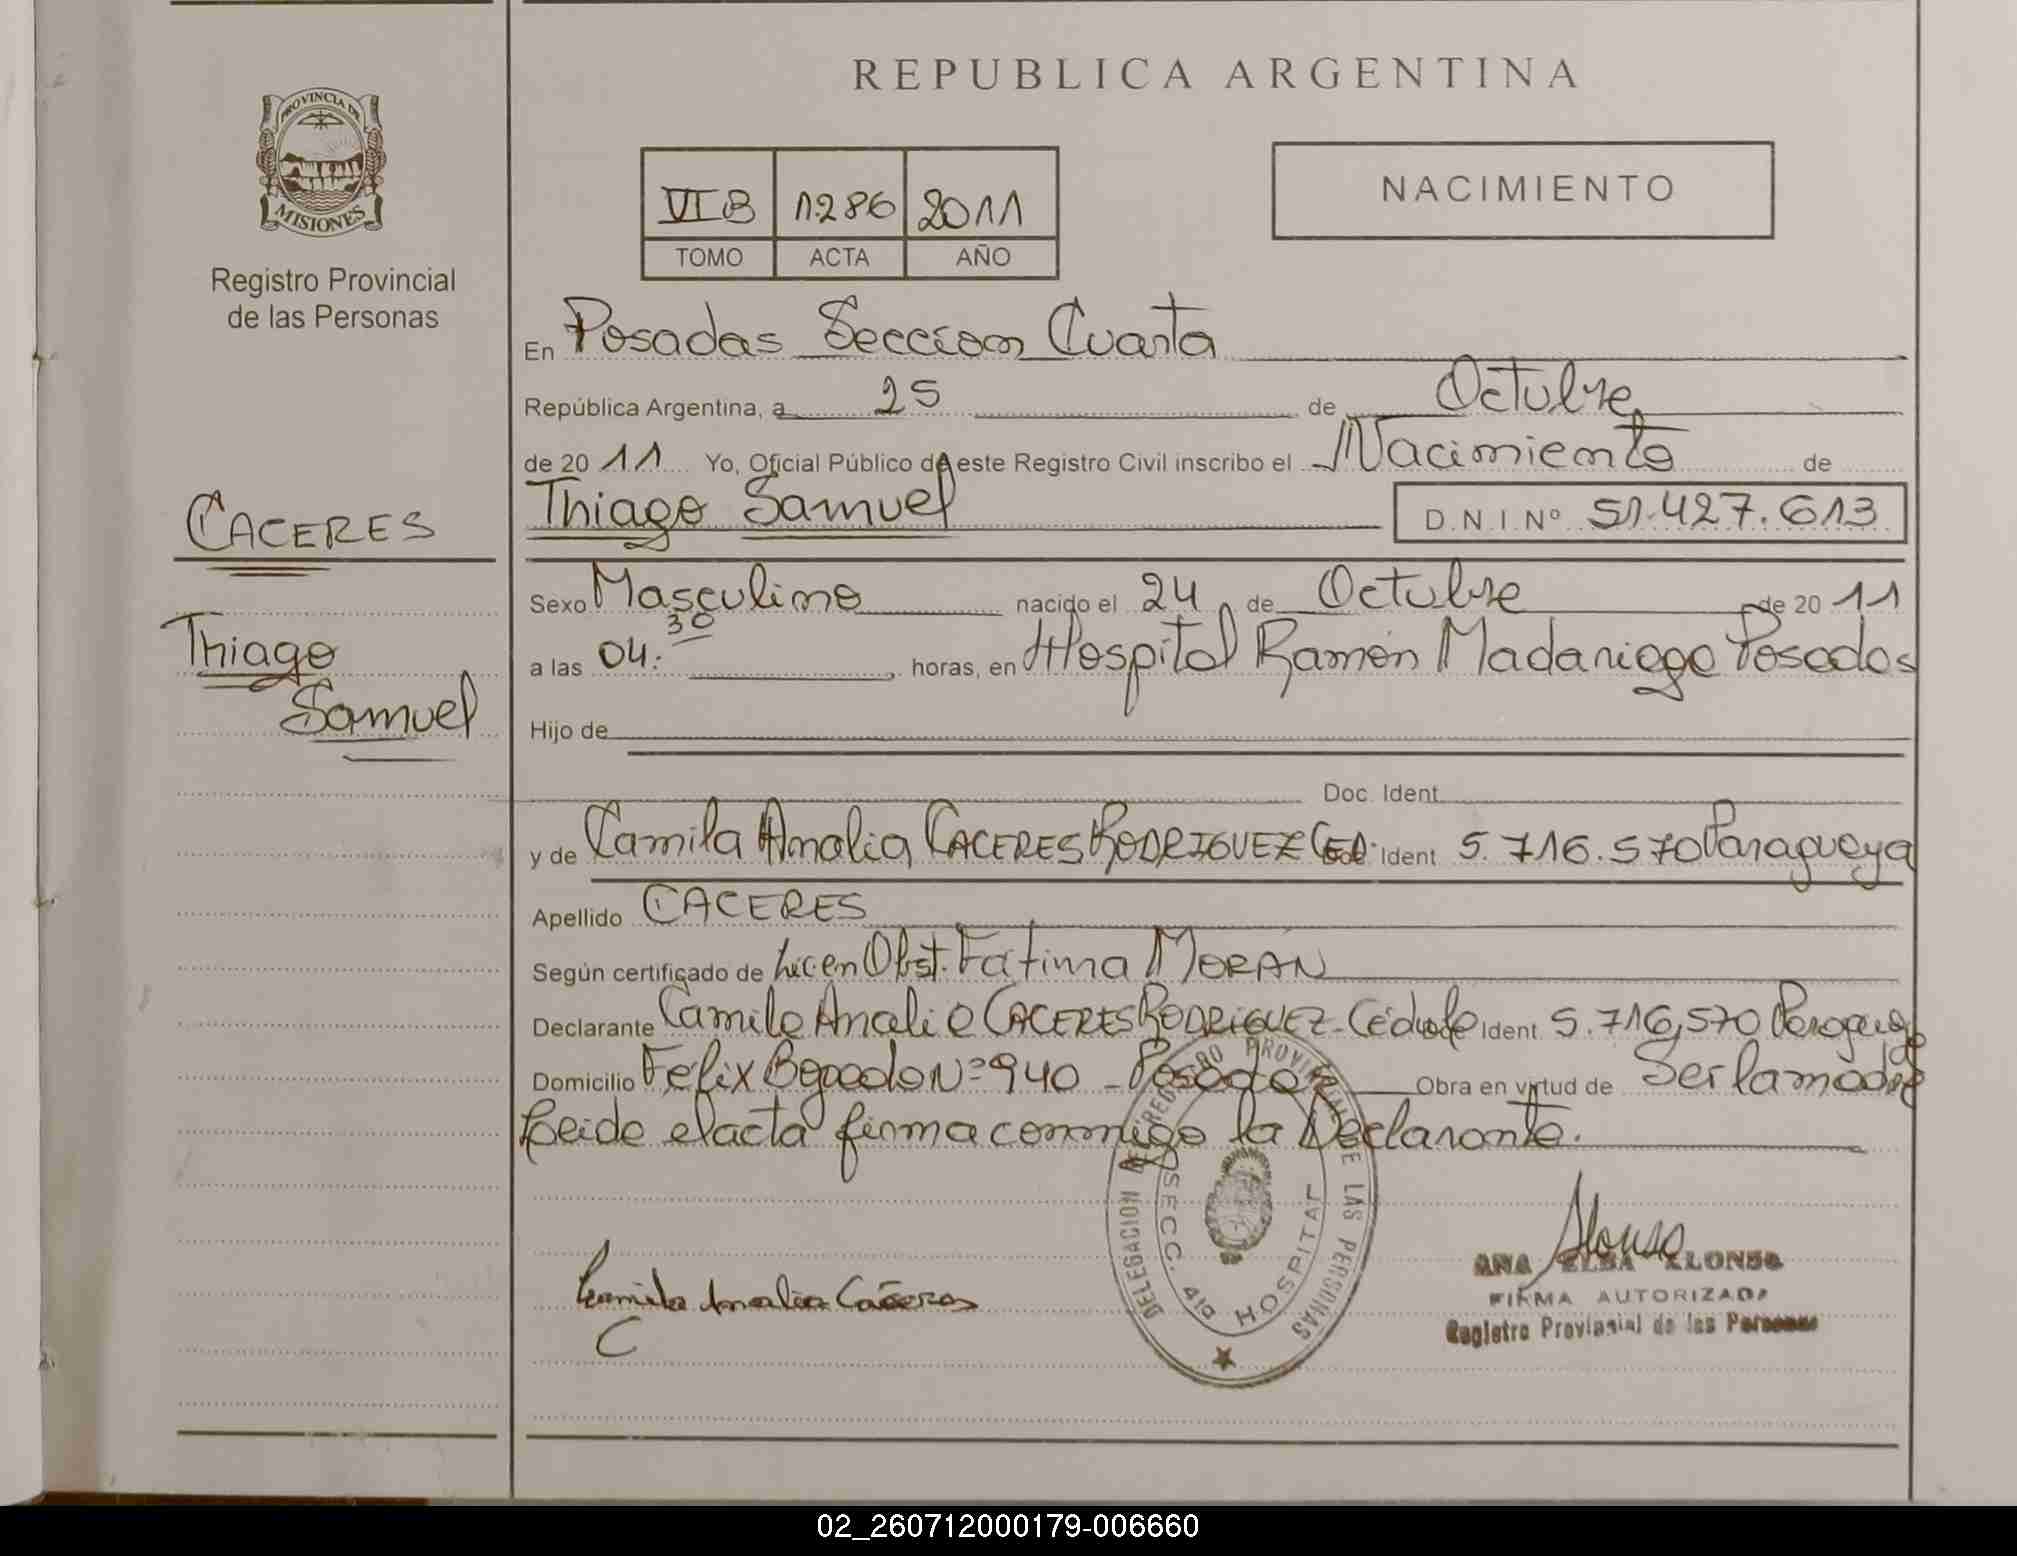 PROVINCIA DE
MISIONES
Registro Provincial
de las Personas
CACERES
Thiago
Samuel
REPUBLICA ARGENTINA
VI B 1286 2011
TOMO ACTA AÑO
NACIMIENTO
En Posadas Seccion Cuarta
República Argentina, a 25 de Octubre
de 2011 Yo, Oficial Público de este Registro Civil inscribo el Nacimiento de
Thiago Samuel D.N.I Nº 51.427.613
Sexo Masculino nacido el 24 de Octubre de 2011
a las 04:30 horas, en Hospital Ramón Madariaga Posadas
Hijo de
Doc. Ident.
y de Camila Amalia CACERES RODRIGUEZ Ced. Ident 5.716.570 Paraguaya
Apellido CACERES
Según certificado de Licen Obst. Fátima MORAN
Declarante Camila Amalia CACERES RODRIGUEZ Cédula Ident 5.716,570 Paraguay
Domicilio Felix Bogado Nº 940 - Posadas Obra en virtud de Ser la madre
Leida el acta firma conmigo la Declarante.
DELEGACION REGISTRO PROVINCIAL DE LAS PERSONAS
SECC. 4ta HOSPITAL
Camila Amalia Cáceres
C
Alonso
ANA ELBA ALONSO
FIRMA AUTORIZADA
Registro Provincial de las Personas
02_260712000179-006660